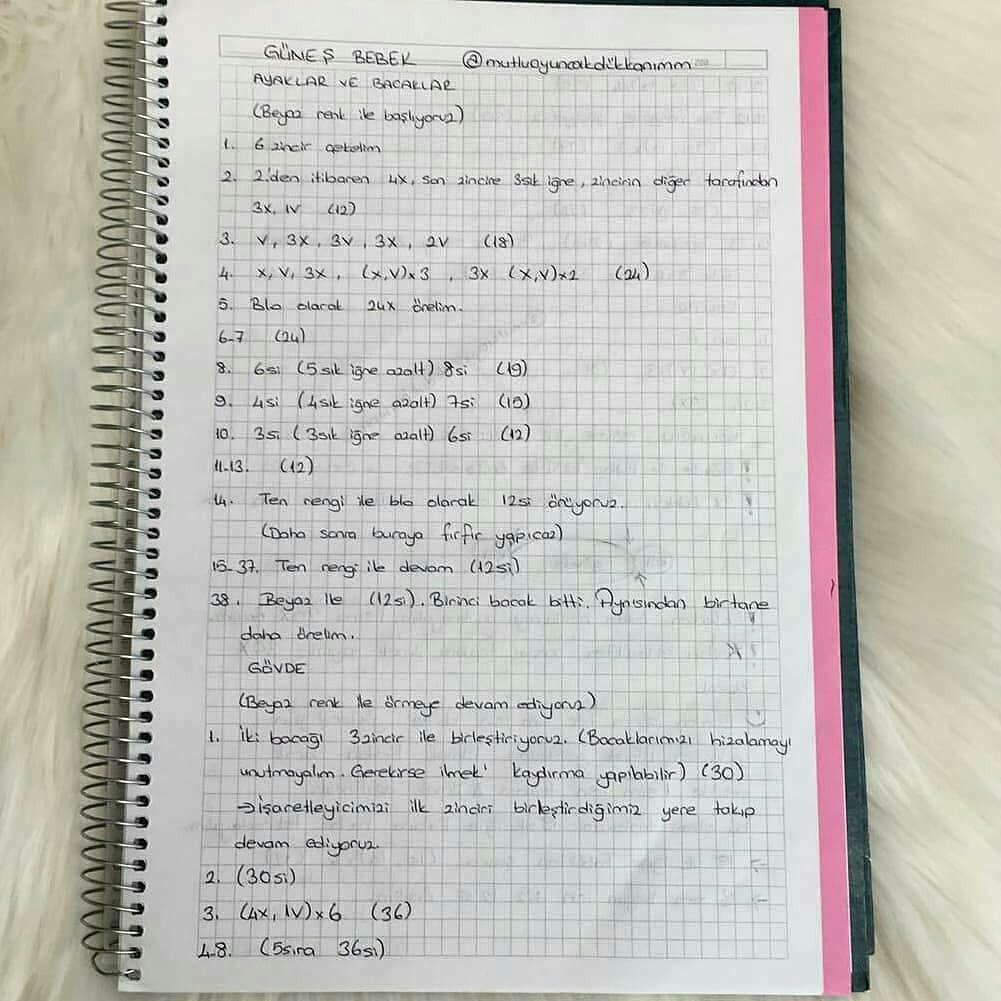 GÜNEŞ BEBEK @mutluoyuncakdükkanımm
AYAKLAR VE BACAKLAR
(Beyaz renk ile başlıyoruz)
1. 6 zincir çekelim
2. 2.'den itibaren 4x, son zincire 3sık iğne, zincirin diğer tarafından
3x, 1V (12)
3. V, 3x, 3V, 3x, 2V (18)
4. x, V, 3x, (x,V)x3, 3x (x,V)x2 (24)
5. Blo olarak 24x örelim.
6-7 (24)
8. 6si (5 sık iğne azalt) 8si (19)
9. 4si (4sık iğne azalt) 7si (15)
10. 3si (3sık iğne azalt) 6si (12)
11-13. (12)
14. Ten rengi ile blo olarak 12si örüyoruz.
(Daha sonra buraya fırfır yapıcaz)
15-37. Ten rengi ile devam (12si)
38. Beyaz ile (12si). Birinci bacak bitti. Aynısından birtane
daha örelim.
GÖVDE
(Beyaz renk ile örmeye devam ediyoruz)
1. İki bacağı 3zincir ile birleştiriyoruz. (Bacaklarımızı hizalamayı
unutmayalım. Gerekirse ilmek' kaydırma yapılabilir) (30)
→İşaretleyicimizi ilk zinciri birleştirdiğimiz yere takıp
devam ediyoruz.
2. (30si)
3. (4x, 1V)x6 (36)
4-8. (5sıra 36si)